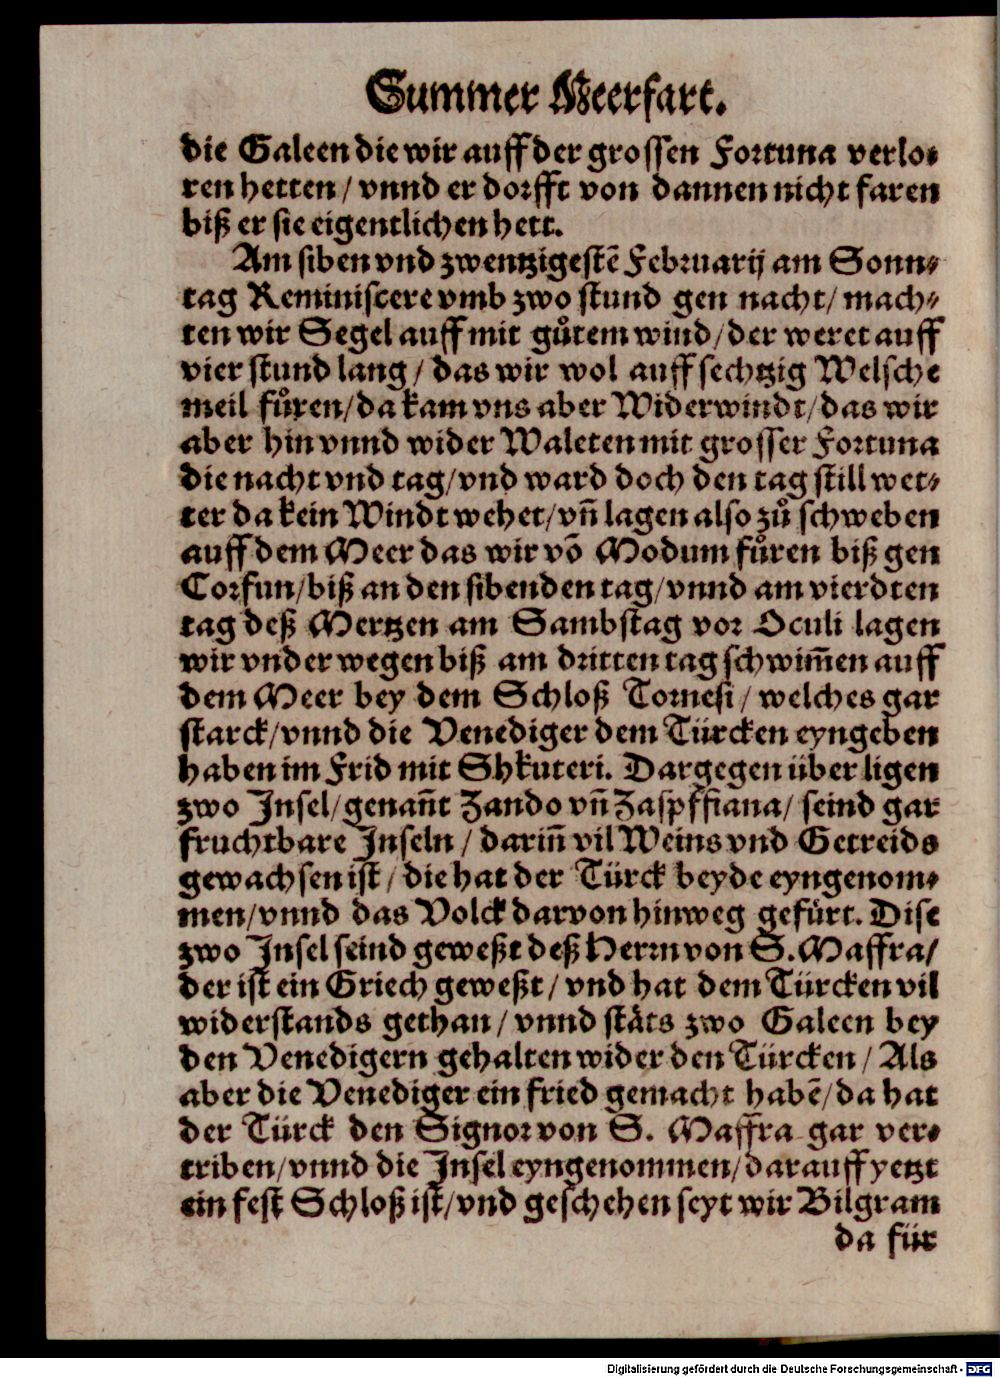 Summer Meerfart.
die Galeen die wir auff der grossen Fortuna verlo-
ren hetten / vnnd er dorfft von dannen nicht faren
biß er sie eigentlichen hett.
Am siben vnd zwentzigestē Februarij am Sonn-
tag Reminiscere vmb zwo stund gen nacht / mach-
ten wir Segel auff mit gůtem wind / der weret auff
vier stund lang / das wir wol auff sechtzig Welsche
meil fůren / da kam vns aber Widerwindt / das wir
aber hin vnnd wider Waleten mit grosser Fortuna
die nacht vnd tag / vnd ward doch den tag still wet-
ter da kein Windt wehet / vñ lagen also zů schweben
auff dem Meer das wir vō Modum fůren biß gen
Corfun / biß an den sibenden tag / vnnd am vierdten
tag deß Mertzen am Sambstag vor Oculi lagen
wir vnderwegen biß am dritten tag schwim̄en auff
dem Meer bey dem Schloß Tornesi / welches gar
starck / vnnd die Venediger dem Türcken eyngeben
haben im Frid mit Shkuteri. Dargegen über ligen
zwo Insel / genañt Zando vñ Zaspffiana / seind gar
fruchtbare Inseln / dariñ vil Weins vnd Getreids
gewachsen ist / die hat der Türck beyde eyngenom-
men / vnnd das Volck darvon hinweg gefürt. Dise
zwo Insel seind geweßt deß Herrn von S. Maffra /
der ist ein Griech geweßt / vnd hat dem Türcken vil
widerstands gethan / vnnd stäts zwo Galeen bey
den Venedigern gehalten wider den Türcken / Als
aber die Venediger ein fried gemacht habē / da hat
der Türck den Signor von S. Maffra gar ver-
triben / vnnd die Insel eyngenommen / darauff yetzt
ein fest Schloß ist / vnd geschehen seyt wir Bilgram
da für
Digitalisierung gefördert durch die Deutsche Forschungsgemeinschaft - DFG